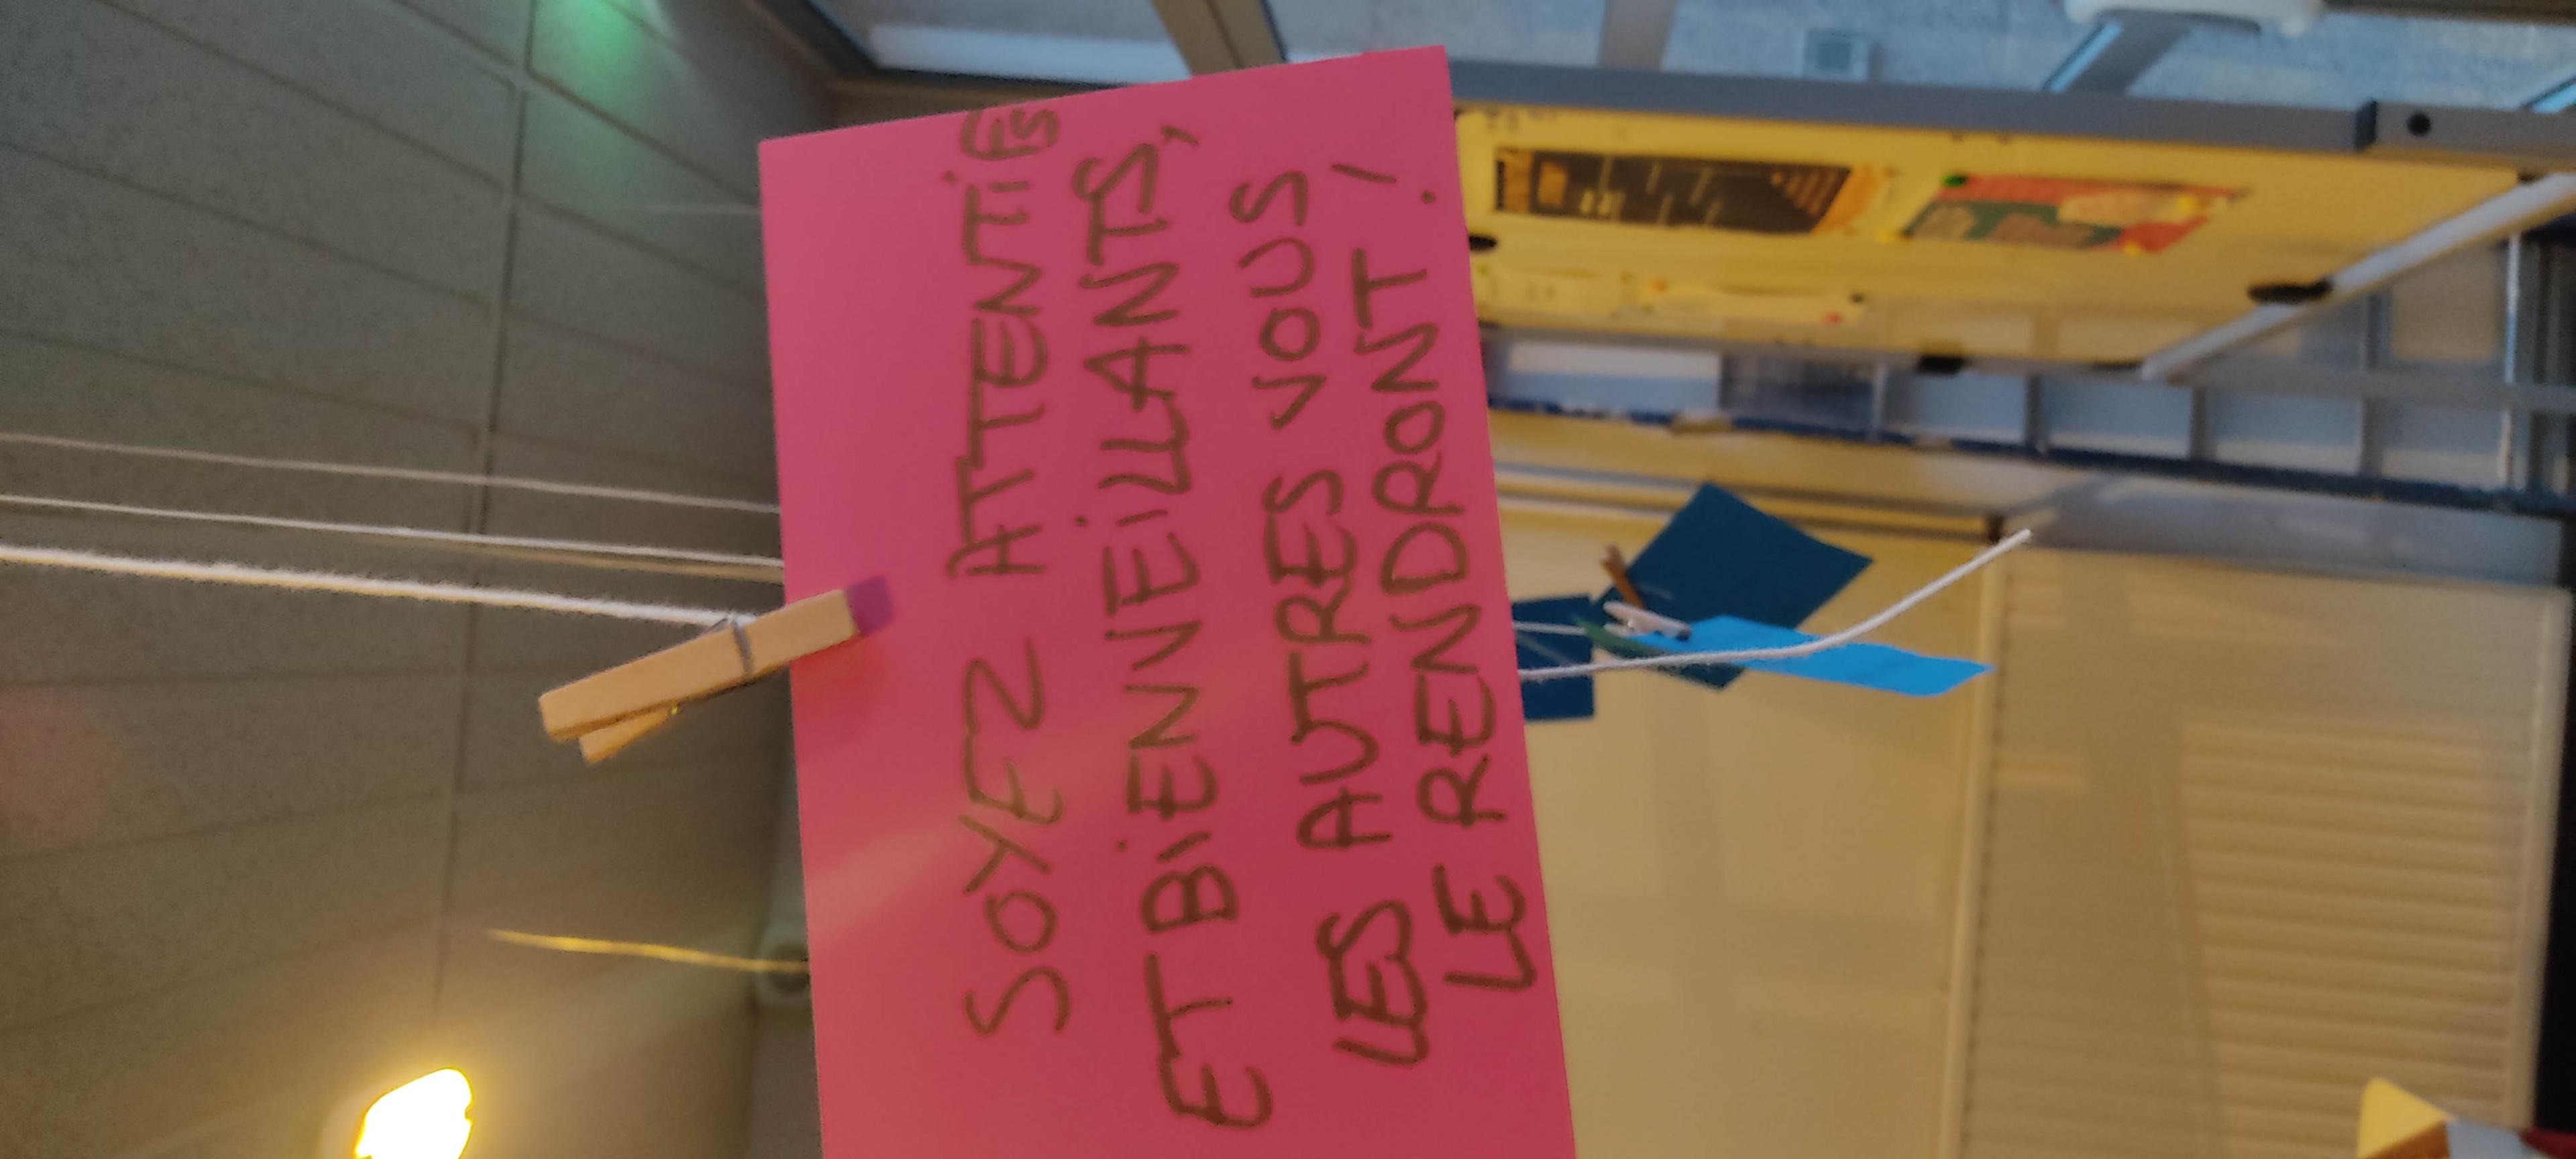 SOYEZ ATTENTiFS
ET BiENVEiLLANTS,
LES AUTRES VOUS
LE RENDRONT !